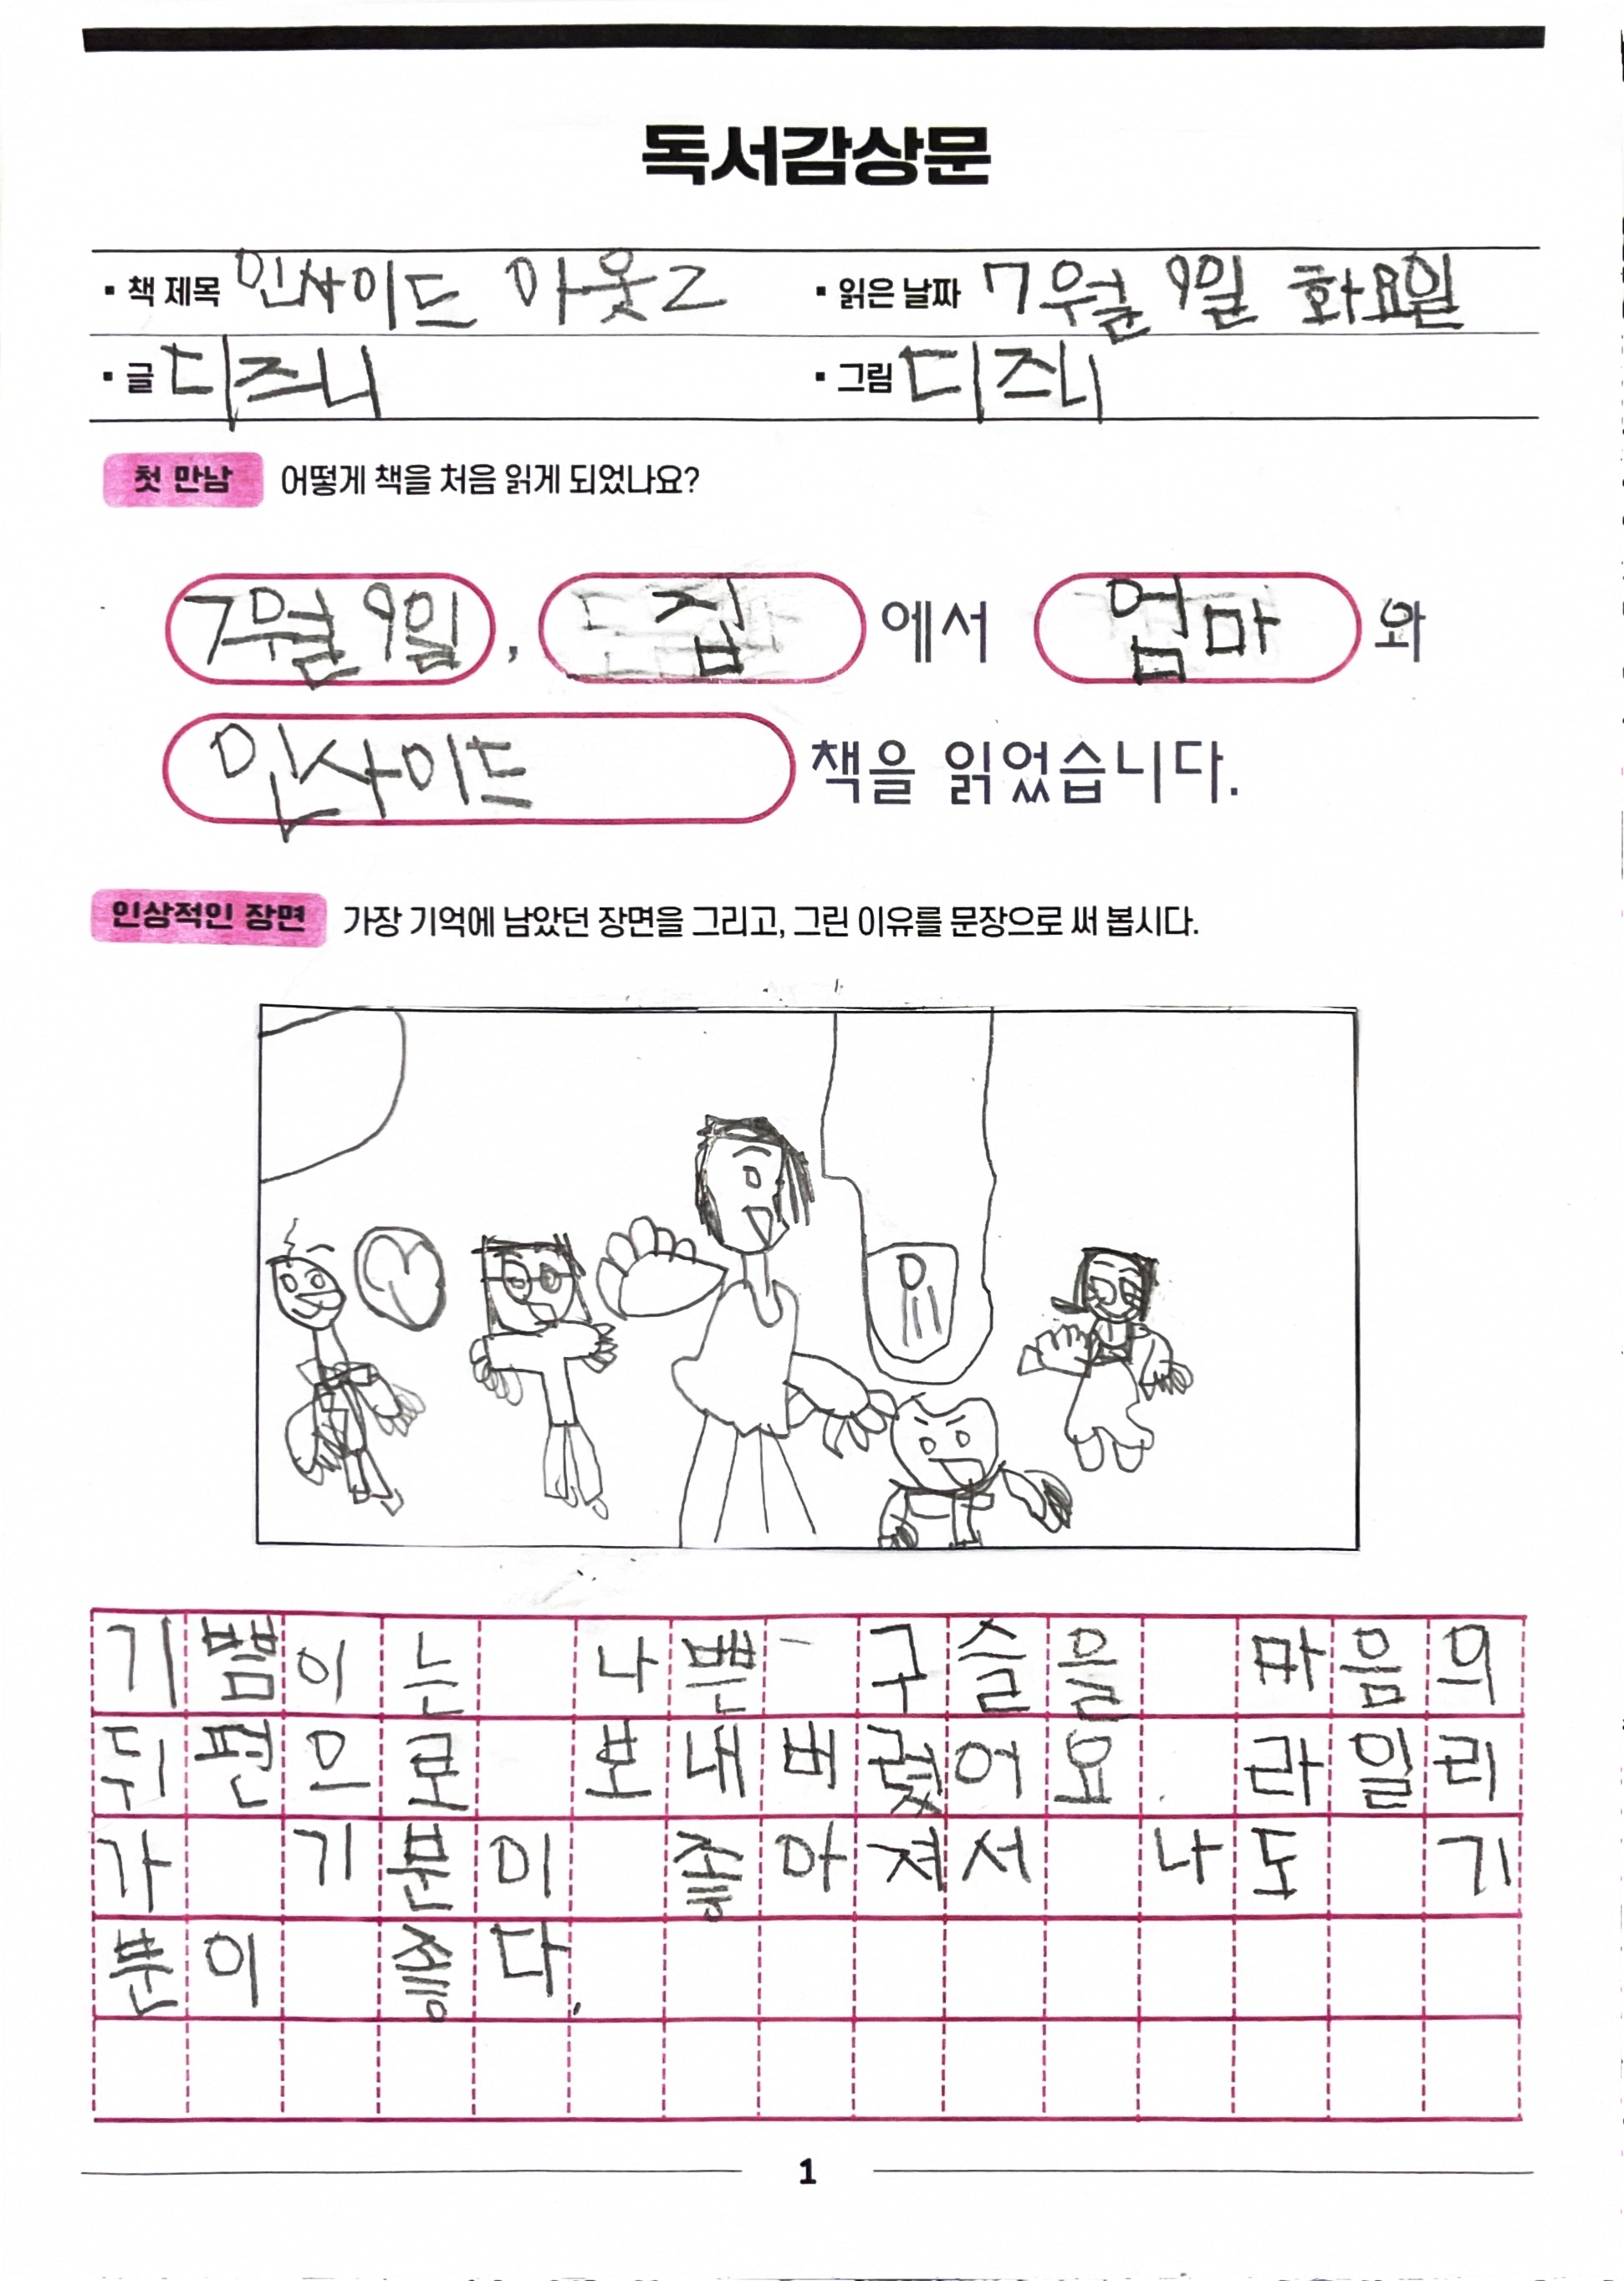 독서감상문
▪ 책 제목 인사이드 아웃2 ▪ 읽은 날짜 7월 9일 화요일
▪ 글 디즈니 ▪ 그림 디즈니
첫 만남 어떻게 책을 처음 읽게 되었나요?
7월 9일, 집 에서 엄마 와
인사이드 책을 읽었습니다.
인상적인 장면 가장 기억에 남았던 장면을 그리고, 그린 이유를 문장으로 써 봅시다.
기쁨이는 나쁜 구슬을 마음의
뒤편으로 보내버렸어요. 라일리
가 기분이 좋아져서 나도 기
분이 좋다.
1